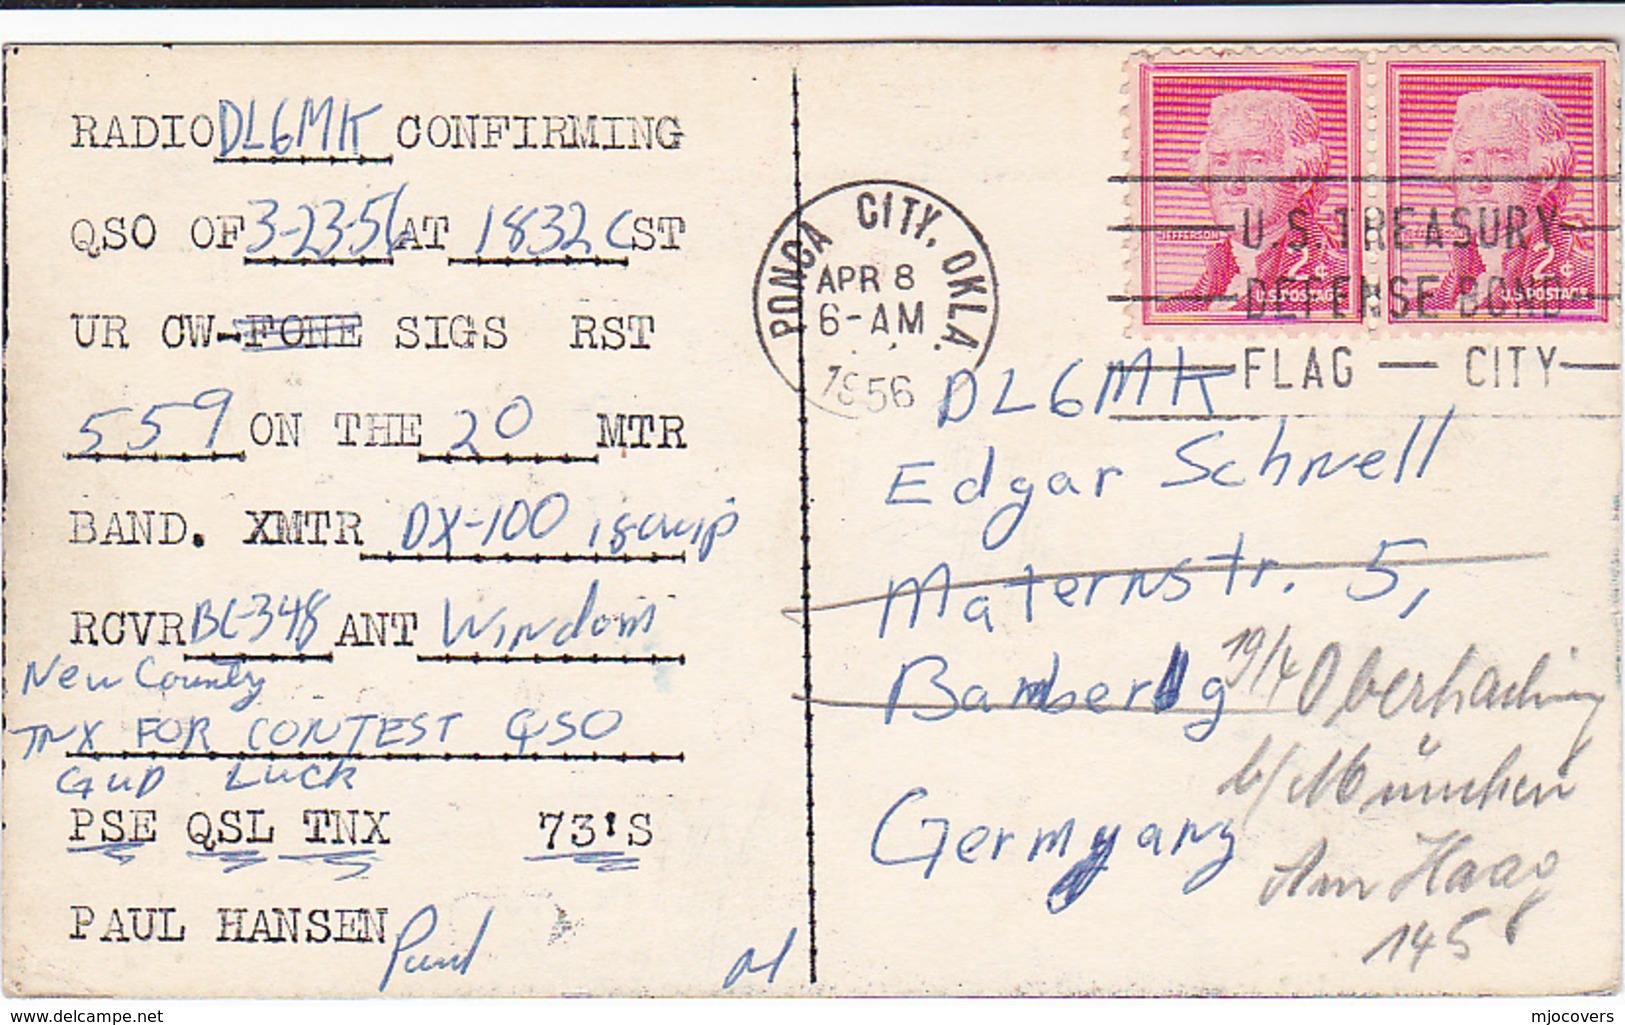 RADIO DL6MK CONFIRMING
QSO OF 3-23-56 AT 1832 CST
UR CW-FONE SIGS RST
559 ON THE 20 MTR
BAND. XMTR DX-100 180W
RCVR BC-348 ANT Windom
New County
TNX FOR CONTEST QSO
GUD LUCK
PSE QSL TNX 73'S
PAUL HANSEN Paul
PONCA CITY, OKLA.
APR 8
6-AM
1956
JEFFERSON
2¢
U.S. POSTAGE
JEFFERSON
2¢
U.S. POSTAGE
U.S. TREASURY
DEFENSE BOND
FLAG — CITY
DL6MK
Edgar Schnell
Maternstr. 5,
Bamberg
Germany
19/4 Oberhaching
b/München
Am Haag
145
mjocovers